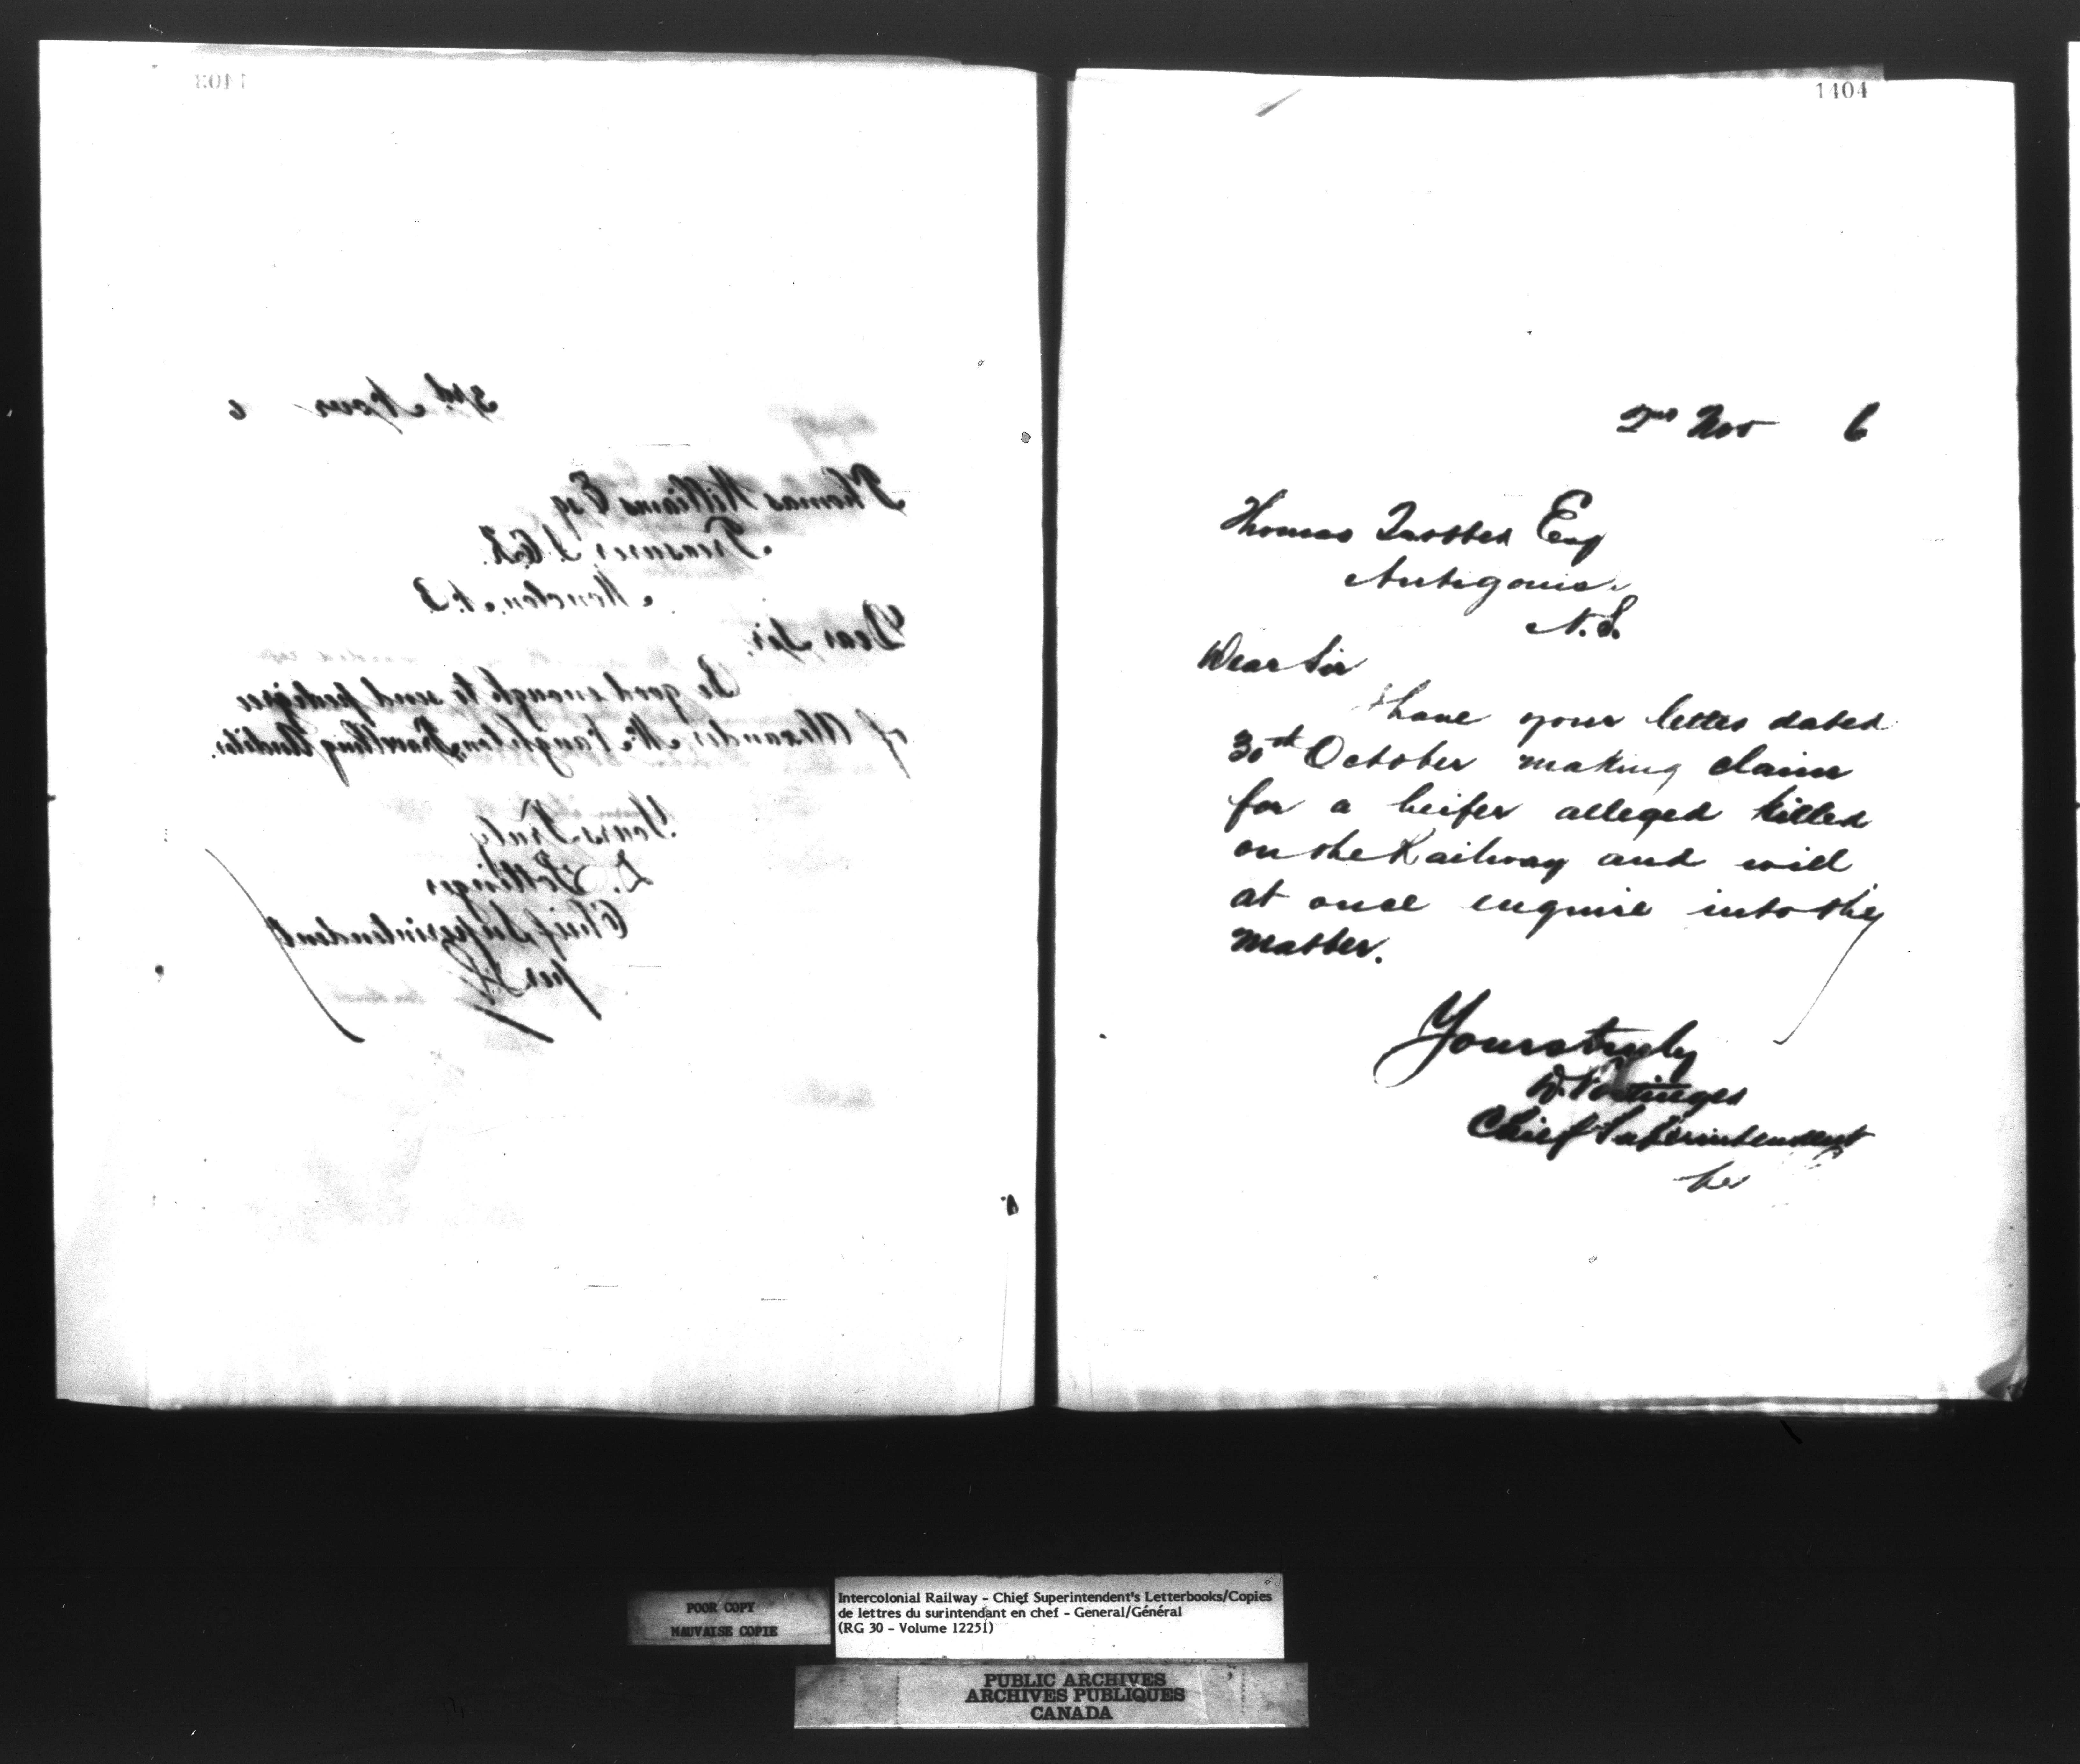 1403
3rd Novr 6
Thomas Williams Esq
Treasurer I.C.R.
Moncton, N.B.
Dear Sir,
Be good enough to send pedigree
of Alexander McNaughton, Travelling Auditor.
Yours Truly
D. Pottinger
Chief Superintendent
per
1404
2nd Nov 6
Thomas Trotter Esq
Antigonis
N.S.
Dear Sir
I have your letter dated
30th October making claim
for a heifer alleged killed
on the Railway and will
at once enquire into the
matter.
Yours truly
D. Pottinger
Chief Superintendent
per
POOR COPY
MAUVAISE COPIE
Intercolonial Railway - Chief Superintendent's Letterbooks/Copies
de lettres du surintendant en chef - General/Général
(RG 30 - Volume 12251)
PUBLIC ARCHIVES
ARCHIVES PUBLIQUES
CANADA